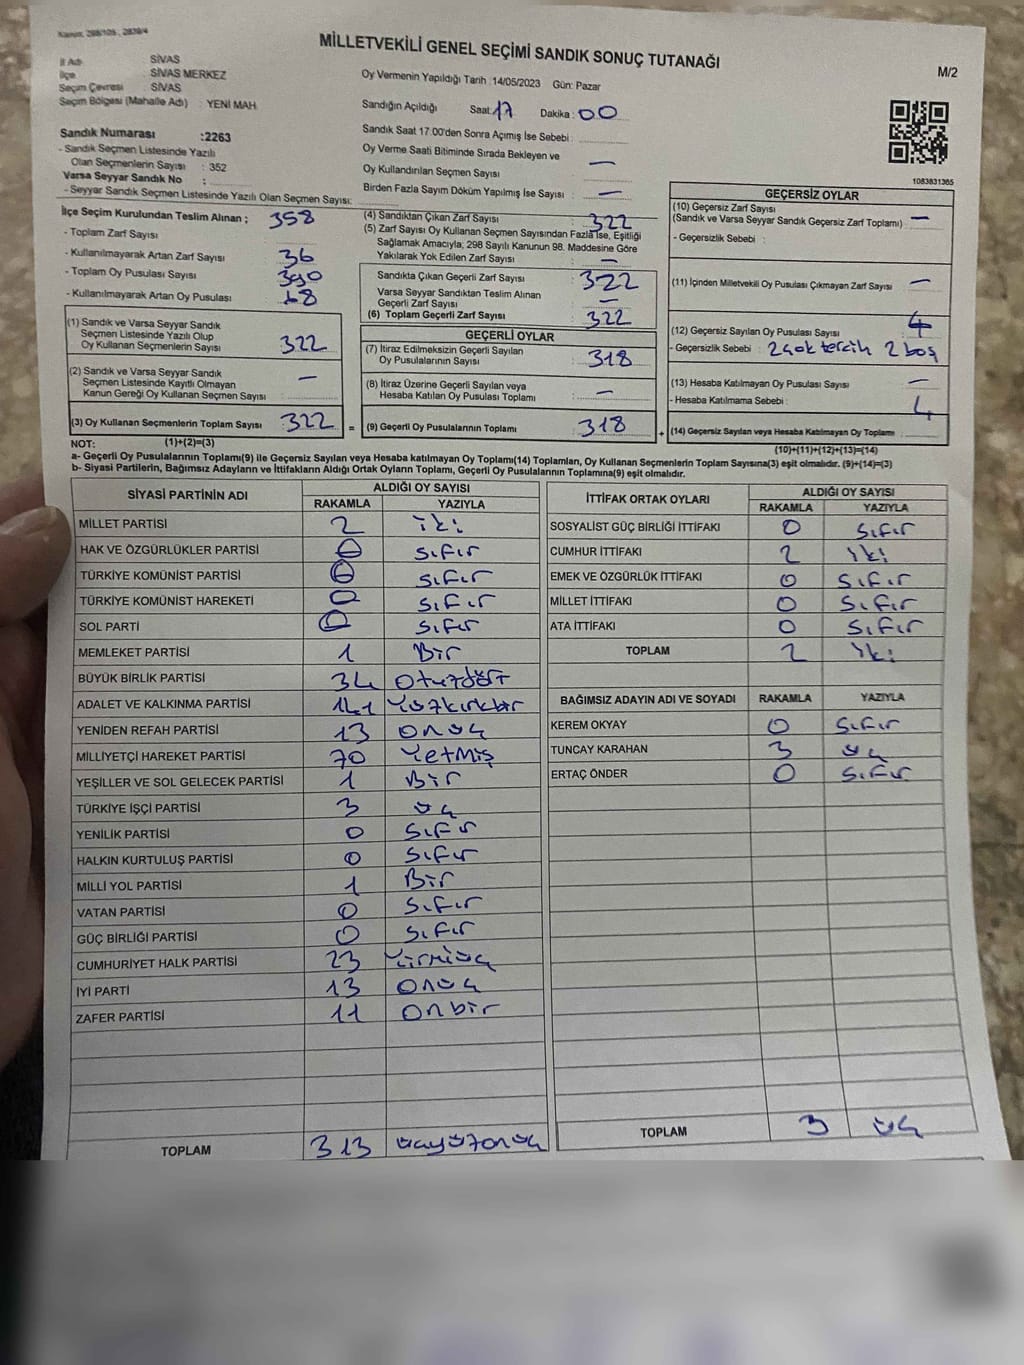 Kanun, 298/105 , 2839/4
MİLLETVEKİLİ GENEL SEÇİMİ SANDIK SONUÇ TUTANAĞI
M/2
İl Adı SİVAS
İlçe SİVAS MERKEZ
Seçim Çevresi : SİVAS
Seçim Bölgesi (Mahalle Adı) : YENİ MAH
Sandık Numarası :2263
- Sandık Seçmen Listesinde Yazılı
Olan Seçmenlerin Sayısı : 352
Varsa Seyyar Sandık No :
- Seyyar Sandık Seçmen Listesinde Yazılı Olan Seçmen Sayısı:
Oy Vermenin Yapıldığı Tarih : 14/05/2023 Gün: Pazar
Sandığın Açıldığı Saat: 17 Dakika : 00
Sandık Saat 17.00'den Sonra Açımış İse Sebebi :
Oy Verme Saati Bitiminde Sırada Bekleyen ve
Oy Kullandırılan Seçmen Sayısı : —
Birden Fazla Sayım Döküm Yapılmış İse Sayısı : —
1083831365
İlçe Seçim Kurulundan Teslim Alınan ; 358
- Toplam Zarf Sayısı
- Kullanılmayarak Artan Zarf Sayısı 36
- Toplam Oy Pusulası Sayısı 390
- Kullanılmayarak Artan Oy Pusulası 68
(1) Sandık ve Varsa Seyyar Sandık
Seçmen Listesinde Yazılı Olup
Oy Kullanan Seçmenlerin Sayısı 322
(2) Sandık ve Varsa Seyyar Sandık
Seçmen Listesinde Kayıtlı Olmayan
Kanun Gereği Oy Kullanan Seçmen Sayısı : —
(3) Oy Kullanan Seçmenlerin Toplam Sayısı 322 =
(4) Sandıktan Çıkan Zarf Sayısı : 322
(5) Zarf Sayısı Oy Kullanan Seçmen Sayısından Fazla İse, Eşitliği
Sağlamak Amacıyla, 298 Sayılı Kanunun 98. Maddesine Göre
Yakılarak Yok Edilen Zarf Sayısı : —
Sandıkta Çıkan Geçerli Zarf Sayısı : 322
Varsa Seyyar Sandıktan Teslim Alınan
Geçerli Zarf Sayısı : —
(6) Toplam Geçerli Zarf Sayısı : 322
GEÇERLİ OYLAR
(7) İtiraz Edilmeksizin Geçerli Sayılan
Oy Pusulalarının Sayısı : 318
(8) İtiraz Üzerine Geçerli Sayılan veya
Hesaba Katılan Oy Pusulası Toplamı : —
(9) Geçerli Oy Pusulalarının Toplamı : 318 +
GEÇERSİZ OYLAR
(10) Geçersiz Zarf Sayısı
(Sandık ve Varsa Seyyar Sandık Geçersiz Zarf Toplamı) : —
- Geçersizlik Sebebi :
(11) İçinden Milletvekili Oy Pusulası Çıkmayan Zarf Sayısı : —
(12) Geçersiz Sayılan Oy Pusulası Sayısı : 4
- Geçersizlik Sebebi : 2 çok tercih 2 boş
(13) Hesaba Katılmayan Oy Pusulası Sayısı : —
- Hesaba Katılmama Sebebi :
(14) Geçersiz Sayılan veya Hesaba Katılmayan Oy Toplamı : 4
NOT: (1)+(2)=(3) (10)+(11)+(12)+(13)=(14)
a- Geçerli Oy Pusulalarının Toplamı(9) ile Geçersiz Sayılan veya Hesaba katılmayan Oy Toplamı(14) Toplamları, Oy Kullanan Seçmenlerin Toplam Sayısına(3) eşit olmalıdır. (9)+(14)=(3)
b- Siyasi Partilerin, Bağımsız Adayların ve İttifakların Aldığı Ortak Oyların Toplamı, Geçerli Oy Pusulalarının Toplamına(9) eşit olmalıdır.
SİYASİ PARTİNİN ADI ALDIĞI OY SAYISI
RAKAMLA YAZIYLA
MİLLET PARTİSİ 2 iki
HAK VE ÖZGÜRLÜKLER PARTİSİ 0 sıfır
TÜRKİYE KOMÜNİST PARTİSİ 0 sıfır
TÜRKİYE KOMÜNİST HAREKETİ 0 sıfır
SOL PARTİ 0 sıfır
MEMLEKET PARTİSİ 1 Bir
BÜYÜK BİRLİK PARTİSİ 34 otuzdört
ADALET VE KALKINMA PARTİSİ 141 Yüzkırkbir
YENİDEN REFAH PARTİSİ 13 onüç
MİLLİYETÇİ HAREKET PARTİSİ 70 Yetmiş
YEŞİLLER VE SOL GELECEK PARTİSİ 1 Bir
TÜRKİYE İŞÇİ PARTİSİ 3 üç
YENİLİK PARTİSİ 0 sıfır
HALKIN KURTULUŞ PARTİSİ 0 sıfır
MİLLİ YOL PARTİSİ 1 Bir
VATAN PARTİSİ 0 sıfır
GÜÇ BİRLİĞİ PARTİSİ 0 sıfır
CUMHURİYET HALK PARTİSİ 23 Yirmiüç
İYİ PARTİ 13 onüç
ZAFER PARTİSİ 11 onbir
TOPLAM 313 üçyüzonüç
İTTİFAK ORTAK OYLARI ALDIĞI OY SAYISI
RAKAMLA YAZIYLA
SOSYALİST GÜÇ BİRLİĞİ İTTİFAKI 0 sıfır
CUMHUR İTTİFAKI 2 iki
EMEK VE ÖZGÜRLÜK İTTİFAKI 0 sıfır
MİLLET İTTİFAKI 0 sıfır
ATA İTTİFAKI 0 sıfır
TOPLAM 2 iki
BAĞIMSIZ ADAYIN ADI VE SOYADI RAKAMLA YAZIYLA
KEREM OKYAY 0 sıfır
TUNCAY KARAHAN 3 üç
ERTAÇ ÖNDER 0 sıfır
TOPLAM 3 üç